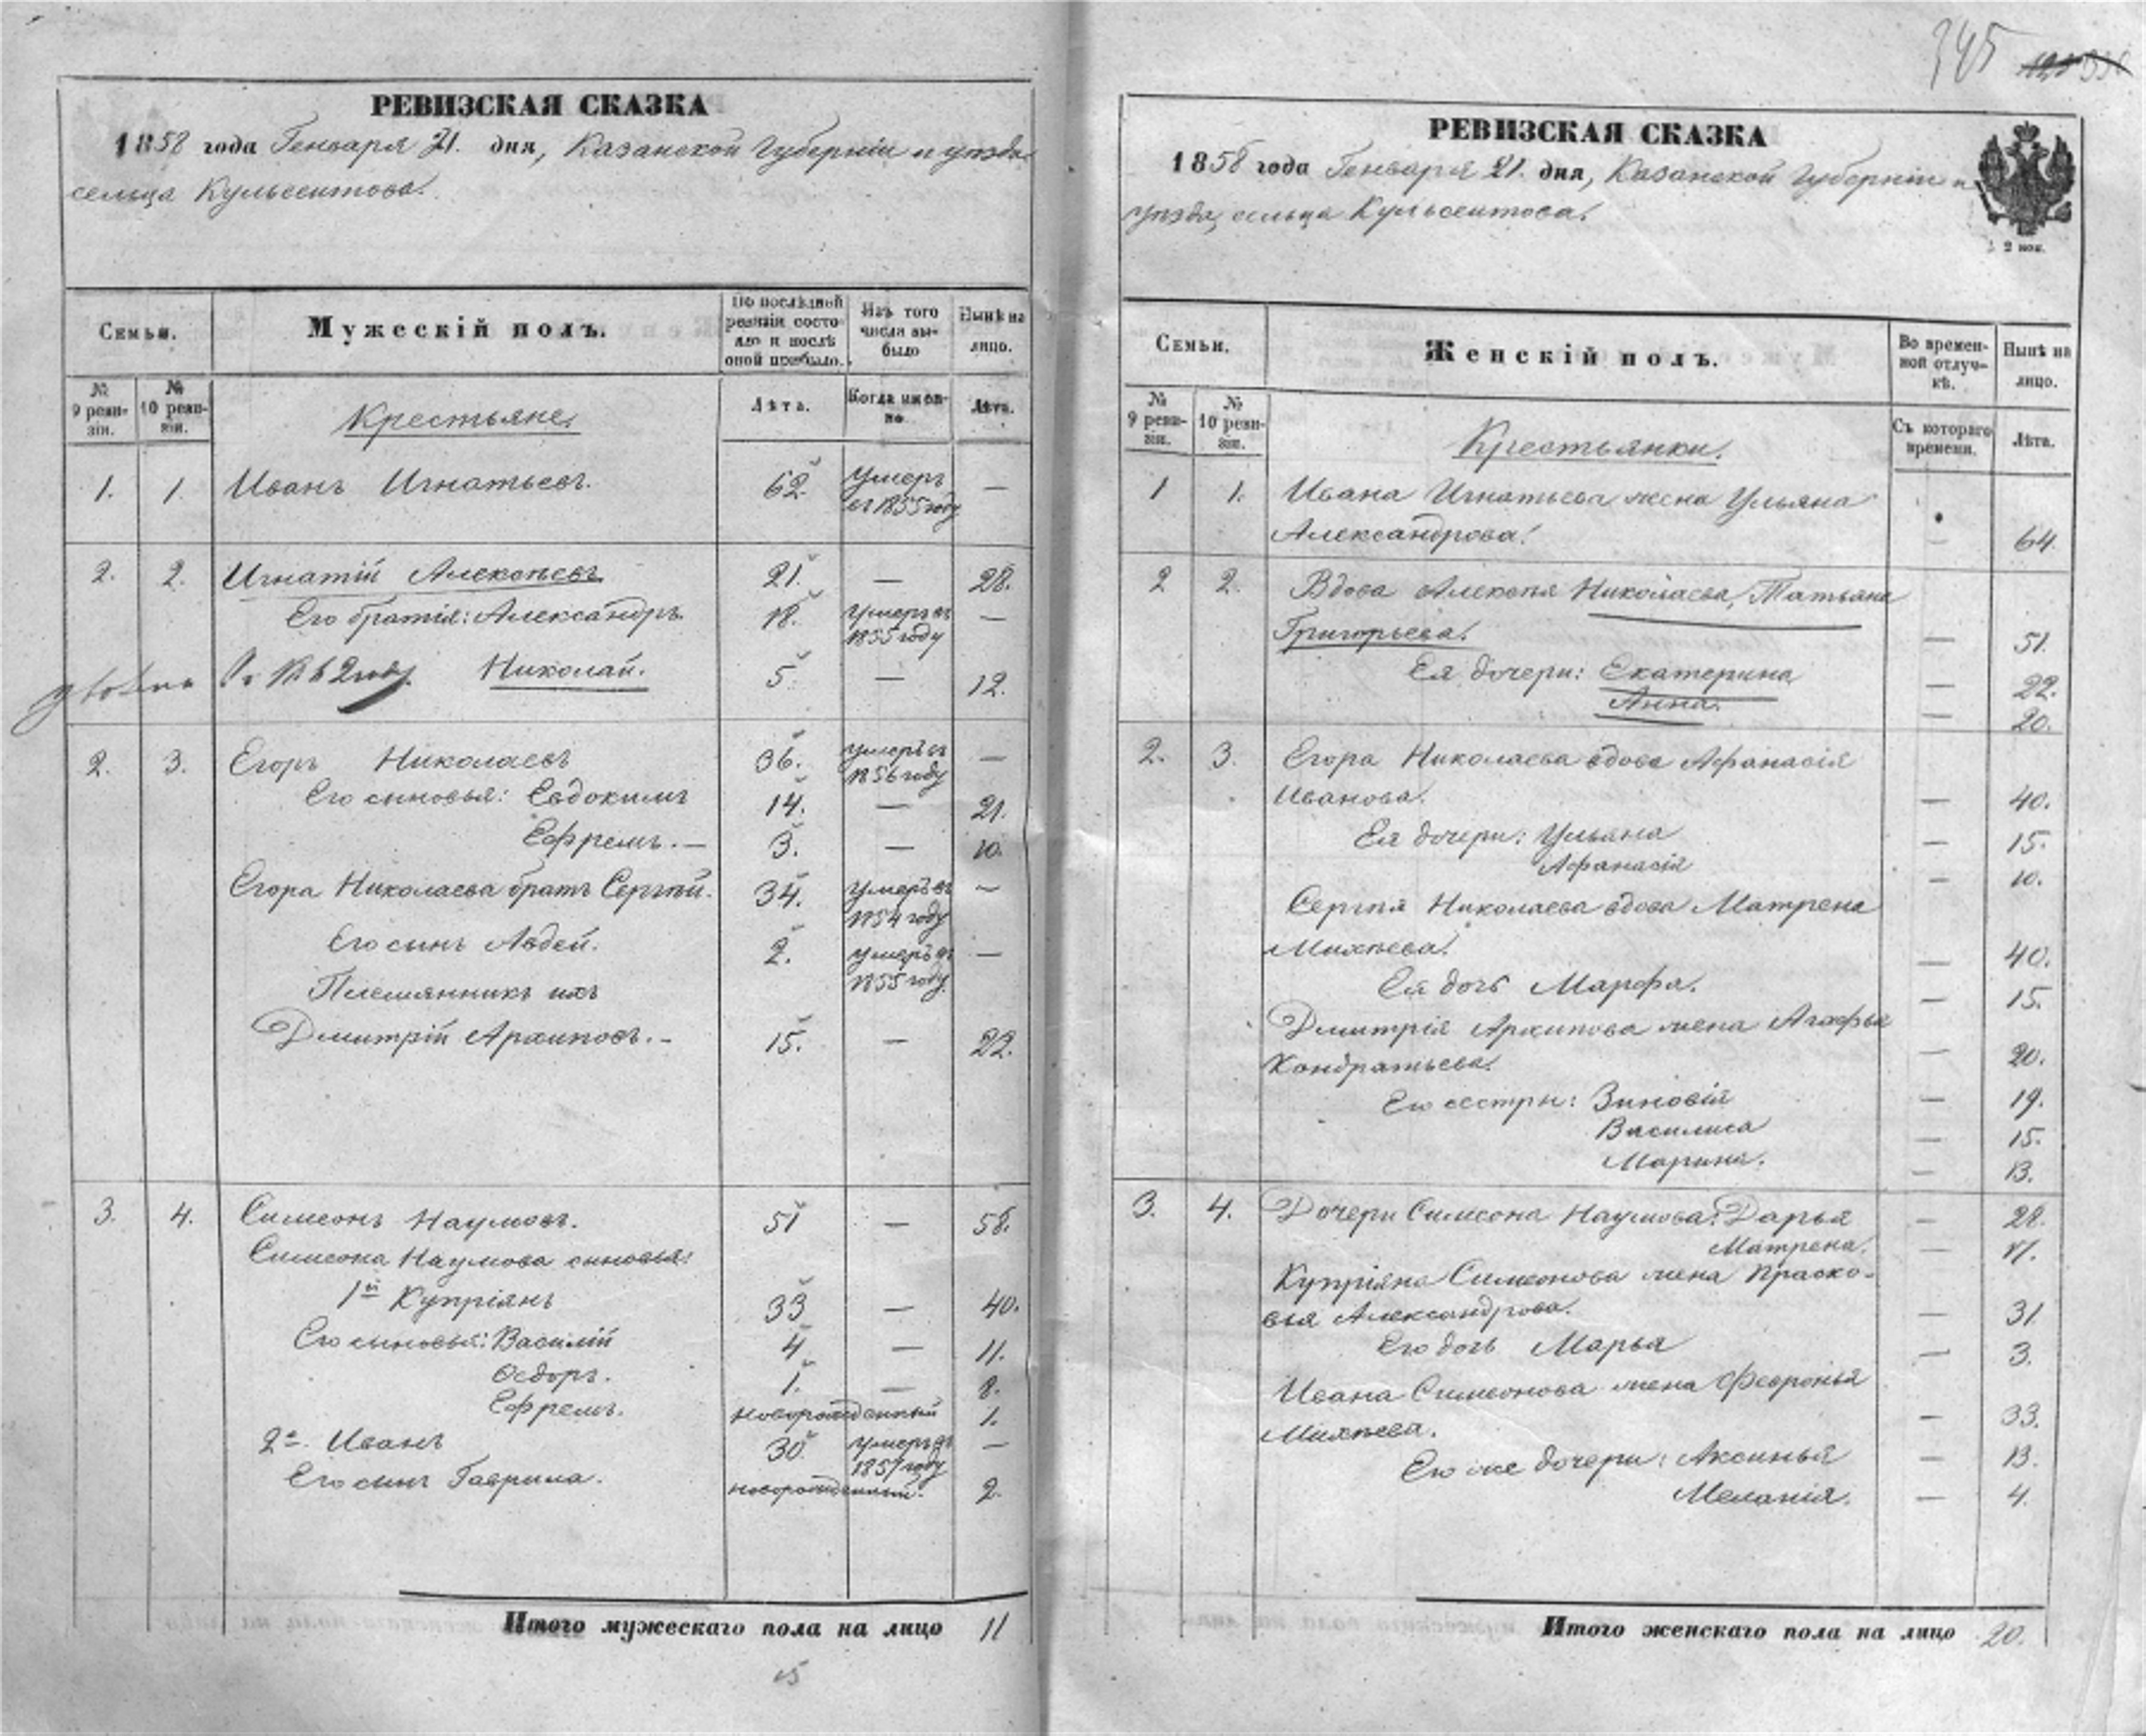 РЕВИЗСКАЯ СКАЗКА
1858 года Генваря 21. дня, Казанской Губерніи и уѣзда
сельца Кульсеитова.
Семьи.
Мужескій полъ.
По послѣдной ревизіи состояло и послѣ оной прибыло.
Изъ того числа выбыло
Нынѣ на лицо.
№ 9 ревизіи.
№ 10 ревизіи.
Крестьяне.
Лѣта.
Когда именно.
Лѣта.
1. 1. Иванъ Игнатьевъ. 62. умеръ —
въ 1855 году
2. 2. Игнатій Алексѣевъ 21. — 28.
Его братія: Александръ. 18. умеръ въ —
1855 году
Николай. 5. — 12.
2. 3. Егоръ Николаевъ 36. умеръ въ —
1856 году
Его сыновья: Евдокимъ 14. — 21.
Ефремъ. — 3. — 10.
Егора Николаева братъ Сергѣй. 34. умеръ въ —
1854 году
Его сынъ Авдей. 2. умеръ въ —
1855 году.
Племянникъ ихъ
Дмитрій Архиповъ. - 15. — 22.
3. 4. Симеонъ Наумовъ. 51 — 58.
Симеона Наумова сыновья:
1й Купріянъ 33 — 40.
Его сыновья: Василій 4 — 11.
Ѳедоръ. 1. — 8.
Ефремъ. новорожденный 1.
2й. Иванъ 30 умеръ въ —
1857 году
Его сынъ Гаврила. новорожденный. 2.
Итого мужескаго пола на лицо 11
345
РЕВИЗСКАЯ СКАЗКА
1858 года Генваря 21. дня, Казанской Губерніи и
уѣзда, сельца Кульсеитова.
2 коп.
Семьи.
Женскій полъ.
Во временной отлучкѣ.
Нынѣ на лицо.
№ 9 ревизіи.
№ 10 ревизіи.
Крестьянки.
Съ котораго времени.
Лѣта.
1 1. Ивана Игнатьева жена Ульяна
Александрова. — 64.
2 2. Вдова Алексѣя Николаева, Татьяна
Григорьева. — 51.
Ея дочери: Екатерина — 22.
Анна. — 20.
2. 3. Егора Николаева вдова Афанасія
Иванова. — 40.
Ея дочери: Ульяна — 15.
Афанасія — 10.
Сергѣя Николаева вдова Матрена
Михѣева. — 40.
Ея дочь Марфа. — 15.
Дмитрія Архипова жена Агафья
Кондратьева. — 20.
Его сестры: Зиновія — 19.
Василиса — 15.
Марина. — 13.
3. 4. Дочери Симеона Наумова: Дарья — 28.
Матрена. —
Купріяна Симеонова жена Праско-
вья Александрова. — 31
Его дочь Марья — 3.
Ивана Симеонова жена Февронья
Михѣева. — 33.
Его же дочери: Аксинья — 13.
Меланія. — 4.
Итого женскаго пола на лицо 20.